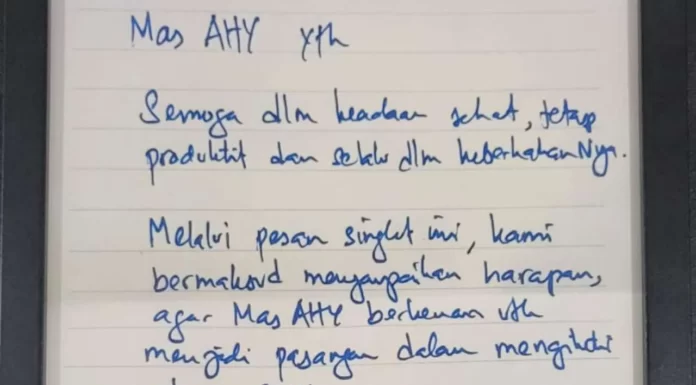 Mas AHY Yth
Semoga dlm keadaan sehat, tetap
produktif dan selalu dlm keberkahanNya.
Melalui pesan singkat ini, kami
bermaksud menyampaikan harapan,
agar Mas AHY berkenan utk
menjadi pasangan dalam mengikuti